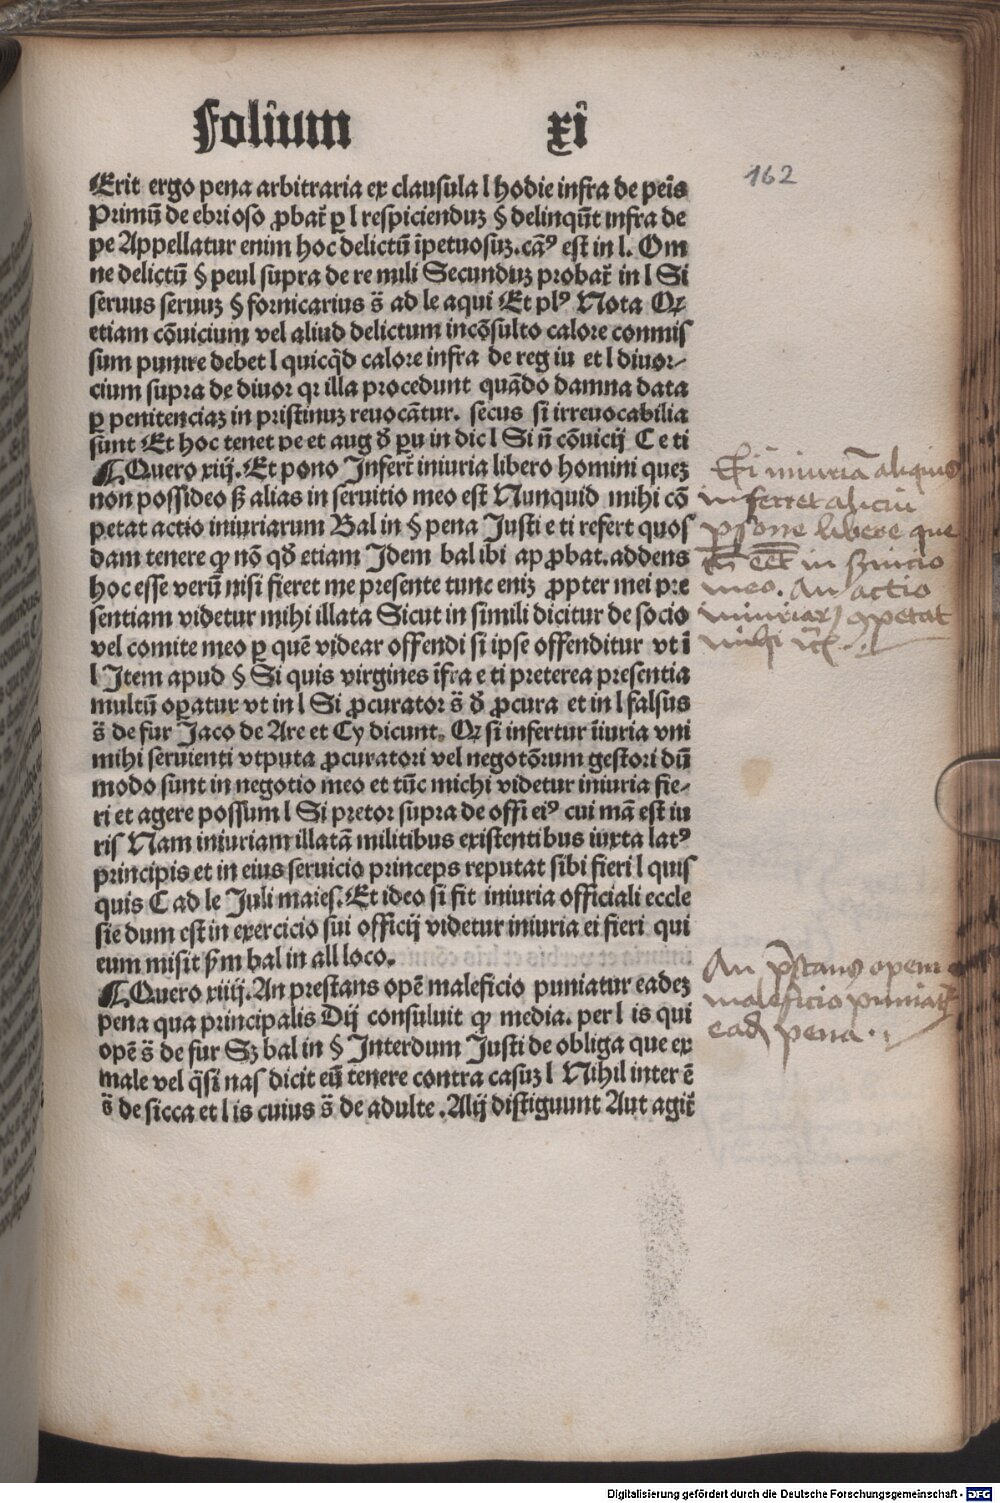 Folium xi
162
Erit ergo pena arbitraria ex clausula l hodie infra de peīs
Primū de ebrioso ꝓbat̄ ꝑ l respicienduꝫ § delinqūt infra de
pe Appellatur enim hoc delictū īpetuosuꝫ. cāꝰ est in l. Om
ne delictū § peul supra de re mili Secunduꝫ probat̄ in l Si
seruus seruuꝫ § fornicarius s̄ ad le aqui Et plꝰ Nota Qꝛ
etiam cōuicium vel aliud delictum incōsulto calore commis
sum punire debet l quicqd calore infra de reg iu et l diuor⸗
cium supra de diuor qr illa procedunt quādo damna data
ꝑ penitenciaꝫ in pristinuꝫ reuocātur. secus si irreuocabilia
sunt Et hoc tenet pe et aug ꝺ̄ pu in dic l Si n̄ cōuicij C e ti
¶ Quero xiij. Et pono Infert̄ iniuria libero homini queꝫ
non possideo sꝫ alias in seruitio meo est Nunquid mihi cō
petat actio iniuriarum Bal in § pena Justi e ti refert quos
dam tenere ꝙ nō qd̄ etiam Idem bal ibi ap ꝓbat. addens
hoc esse verū nisi fieret me presente tunc eniꝫ ꝓpter mei pre
sentiam videtur mihi illata Sicut in simili dicitur de socio
vel comite meo ꝑ quē videar offendi si ipse offenditur vt ī
l Item apud § Si quis virgines īfra e ti preterea presentia
multū oꝑatur vt in l Si ꝓcurator s̄ ꝺ̄ ꝓcura et in l falsus
s̄ de fur Jaco de Are et Cy dicunt. Qꝛ si infertur iīuria vni
mihi seruienti vtputa ꝓcuratori vel negotōrum gestori dū
modo sunt in negotio meo et tūc michi videtur iniuria fie⸗
ri et agere possum l Si pretor supra de offi eiꝰ cui mā est iu
ris Nam iniuriam illatā militibus existentibus iuxta latꝰ
principis et in eius seruicio princeps reputat sibi fieri l quis
quis C ad le Juli maies. Et ideo si fit iniuria officiali eccle
sie dum est in exercicio sui officij videtur iniuria ei fieri qui
eum misit ẜm bal in all loco.
¶ Quero xiiij. An prestans opē maleficio puniatur eadeꝫ
pena qua principalis Dij consuluit ꝙ media. per l is qui
opē s̄ de fur Sꝫ bal in § Interdum Justi de obliga que ex
male vel q̄si nas dicit eū tenere contra casuꝫ l Nihil inter ē
s̄ de sicca et l is cuius s̄ de adulte. Alij distiguunt Aut agit̄
Et iniuriā aliquis
inferret alicui
psone libere que
tn̄ eēt in s̄uicio
meo. An actio
iniuriaꝝ 9petat
mihi
An p̄stans opem
maleficio puniat̄
eadꝫ pena.
Digitalisierung gefördert durch die Deutsche Forschungsgemeinschaft - DFG